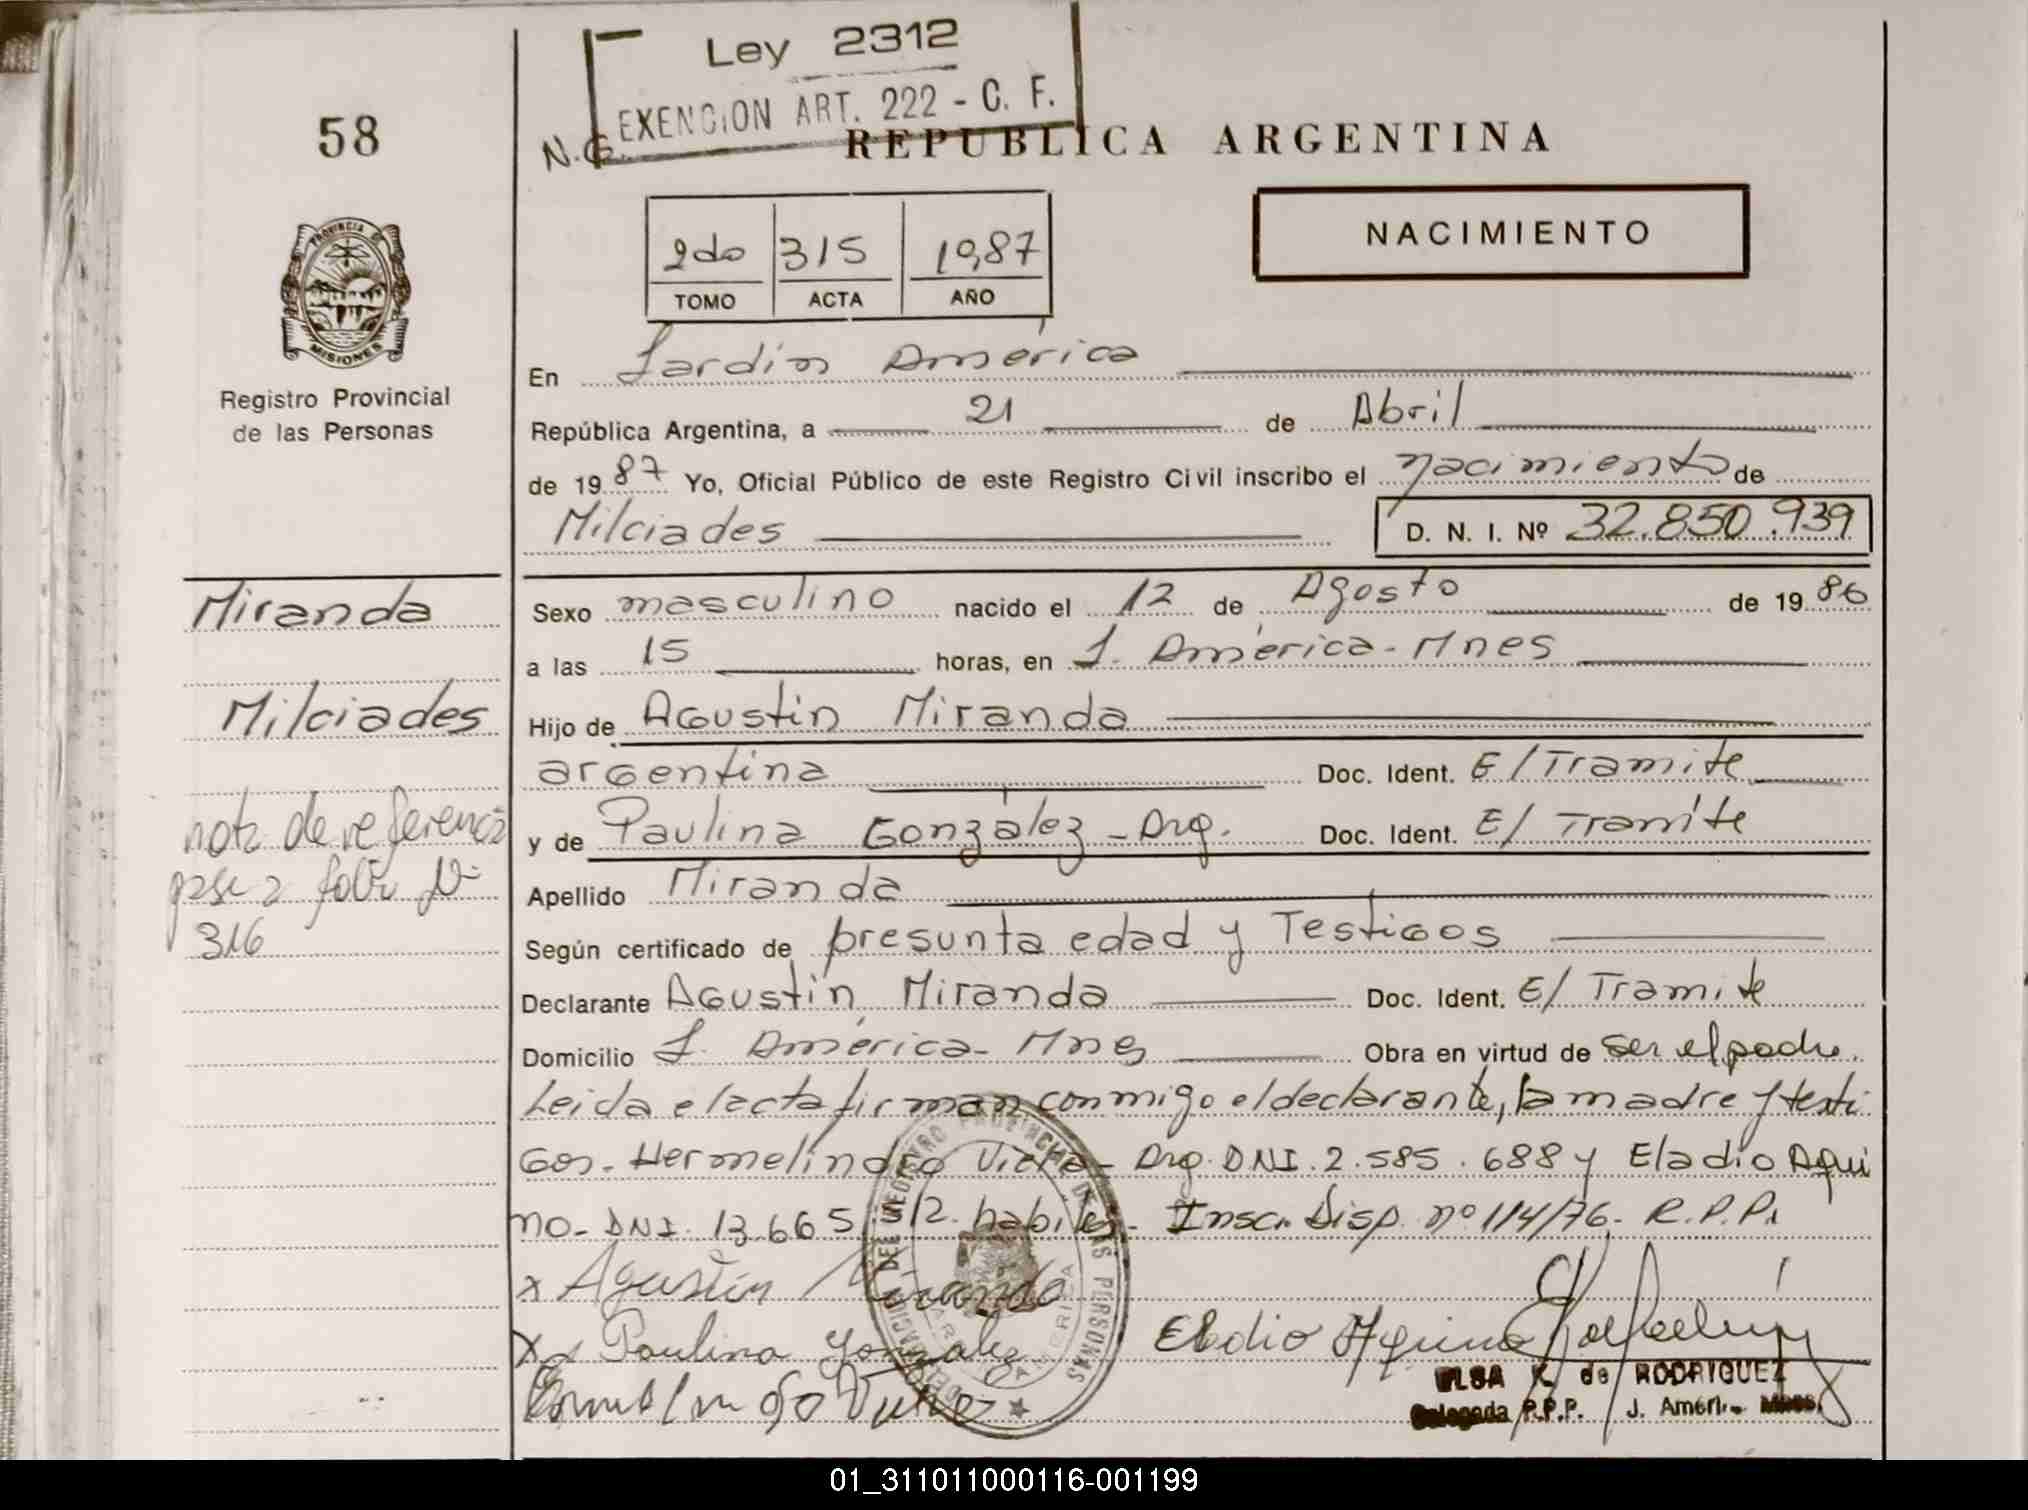 Ley 2312
EXENCION ART. 222 - C. F.
N.G.
58
REPUBLICA ARGENTINA
PROVINCIA DE
MISIONES
2do 315 1987
TOMO ACTA AÑO
NACIMIENTO
Registro Provincial
de las Personas
En Jardín América
República Argentina, a 21 de Abril
de 1987 Yo, Oficial Público de este Registro Civil inscribo el nacimiento de
Milciades D. N. I. Nº 32.850.939
Miranda
Milciades
nota de referencia
pase a folio Nº
316
Sexo masculino nacido el 12 de Agosto de 1986
a las 15 horas, en J. América - Mnes
Hijo de Agustín Miranda
argentina Doc. Ident. E/Tramite
y de Paulina González - Arg. Doc. Ident. E/ Tramite
Apellido Miranda
Según certificado de presunta edad y Testigos
Declarante Agustín Miranda Doc. Ident. E/ Tramite
Domicilio J. América - Mnes Obra en virtud de ser el padre.
Leida el acta firman conmigo el declarante, la madre y testi
gos - Hermelindo Viera - Arg. DNI. 2.585.688 y Eladio Aqui
no - DNI. 13.665.512. habiles - Inscr. Disp. nº 114/76 - R.P.P.
x Agustín Miranda
x Paulina González
Eladio Aquino
DELEGACION DEL REGISTRO PROVINCIAL DE LAS PERSONAS
ELSA K. de RODRIGUEZ
Delegada P.P.P. J. Améri. Mnes.
01_311011000116-001199